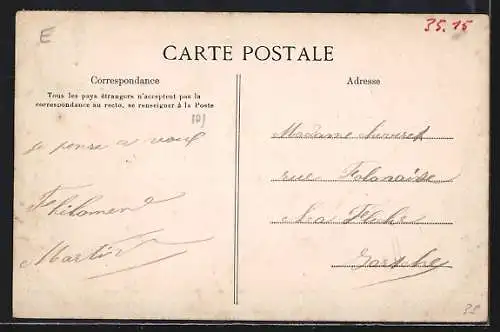 E
35.15
CARTE POSTALE
Correspondance
Tous les pays étrangers n'acceptent pas la
correspondance au recto, se renseigner à la Poste
Adresse
je pense a vous
Philomène
Martin
Madame
rue
La Flèche
Sarthe